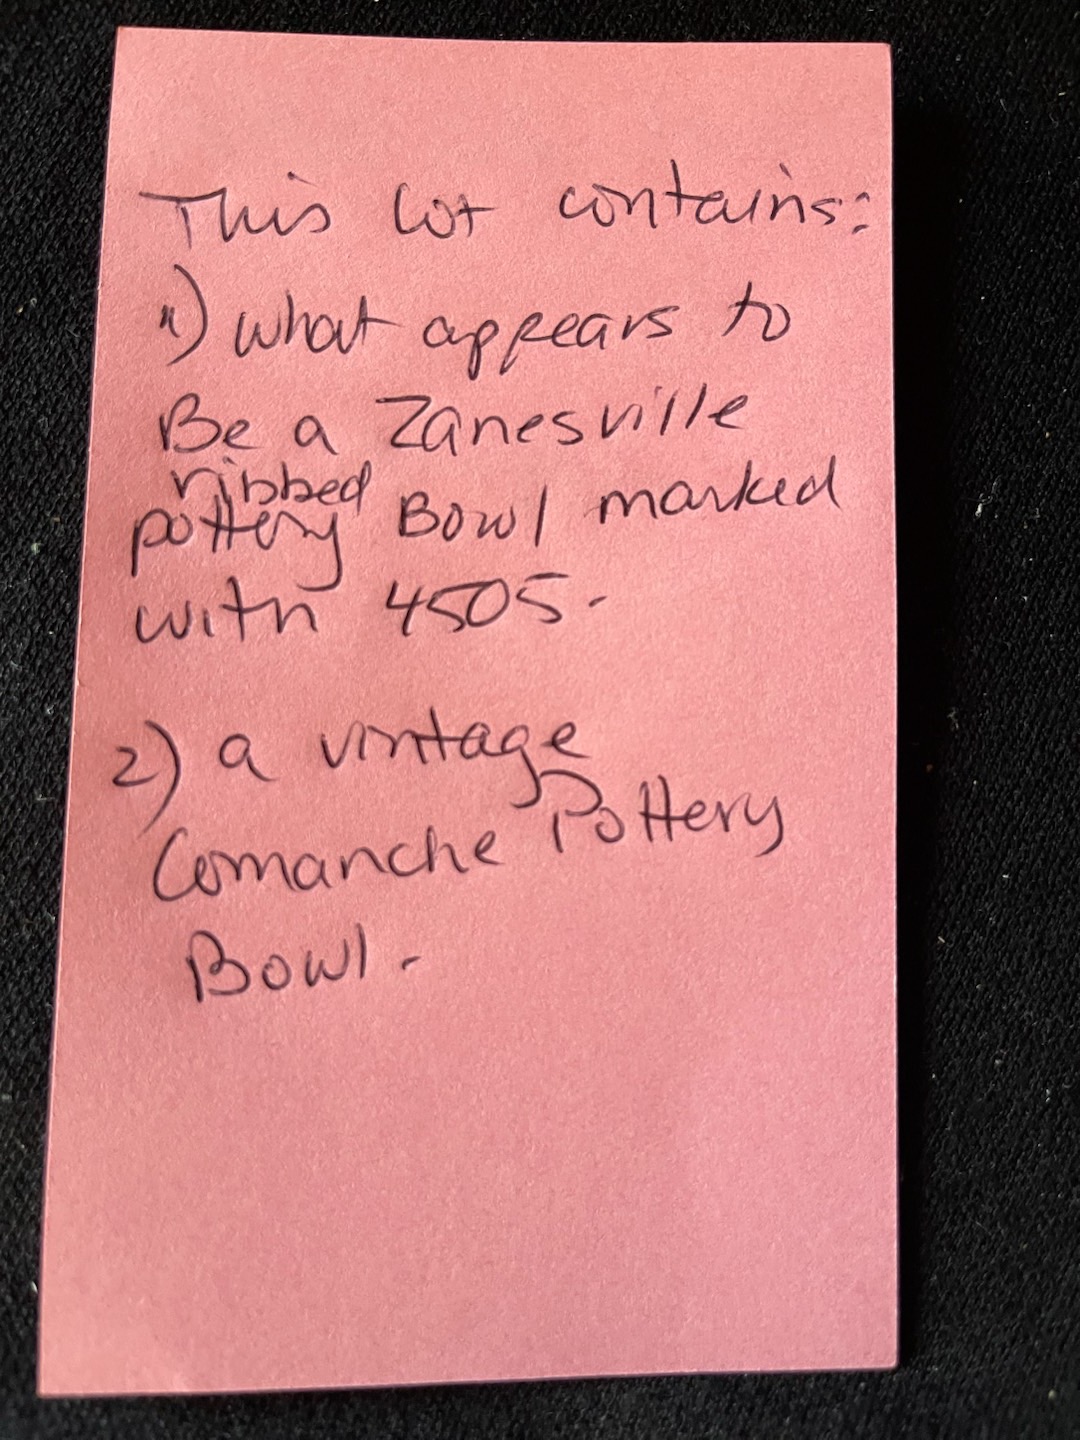 This lot contains:
1) what appears to
Be a Zanesville
ribbed
pottery Bowl marked
with 4505.
2) a vintage
Comanche Pottery
Bowl.